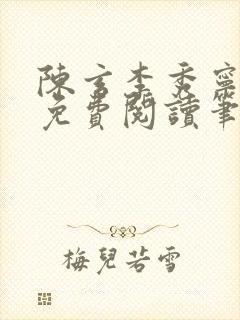 陳玄李秀寧
免費閱讀筆
梅兒若雪